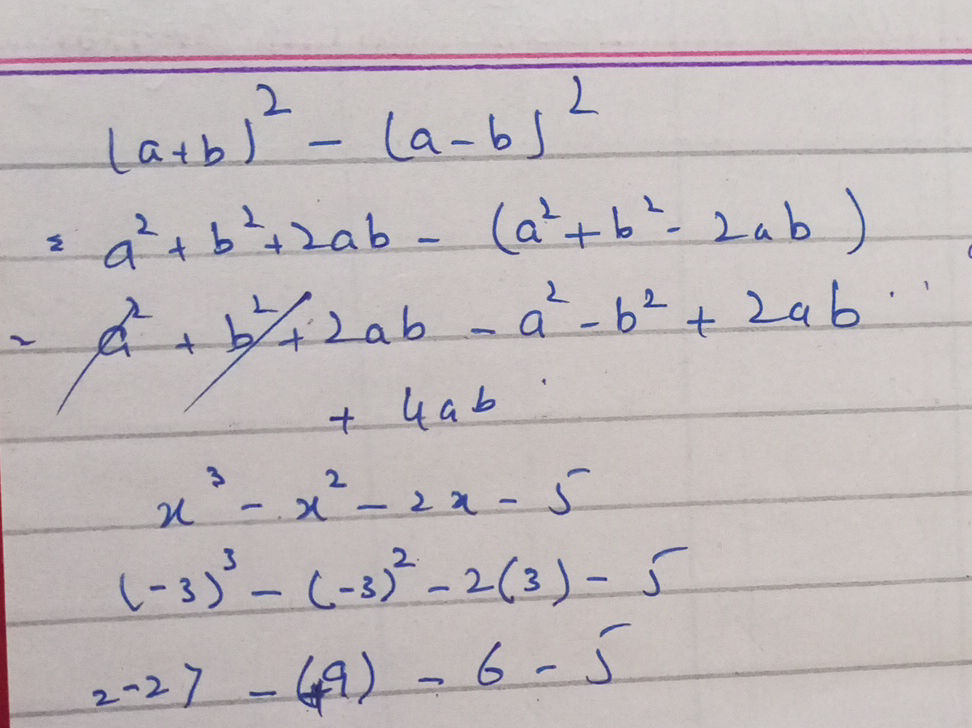 (a+b)² - (a-b)²
= a² + b² + 2ab - (a² + b² - 2ab)
= a² + b² + 2ab - a² - b² + 2ab
+ 4ab
x³ - x² - 2x - 5
(-3)³ - (-3)² - 2(3) - 5
= -27 - (+9) - 6 - 5